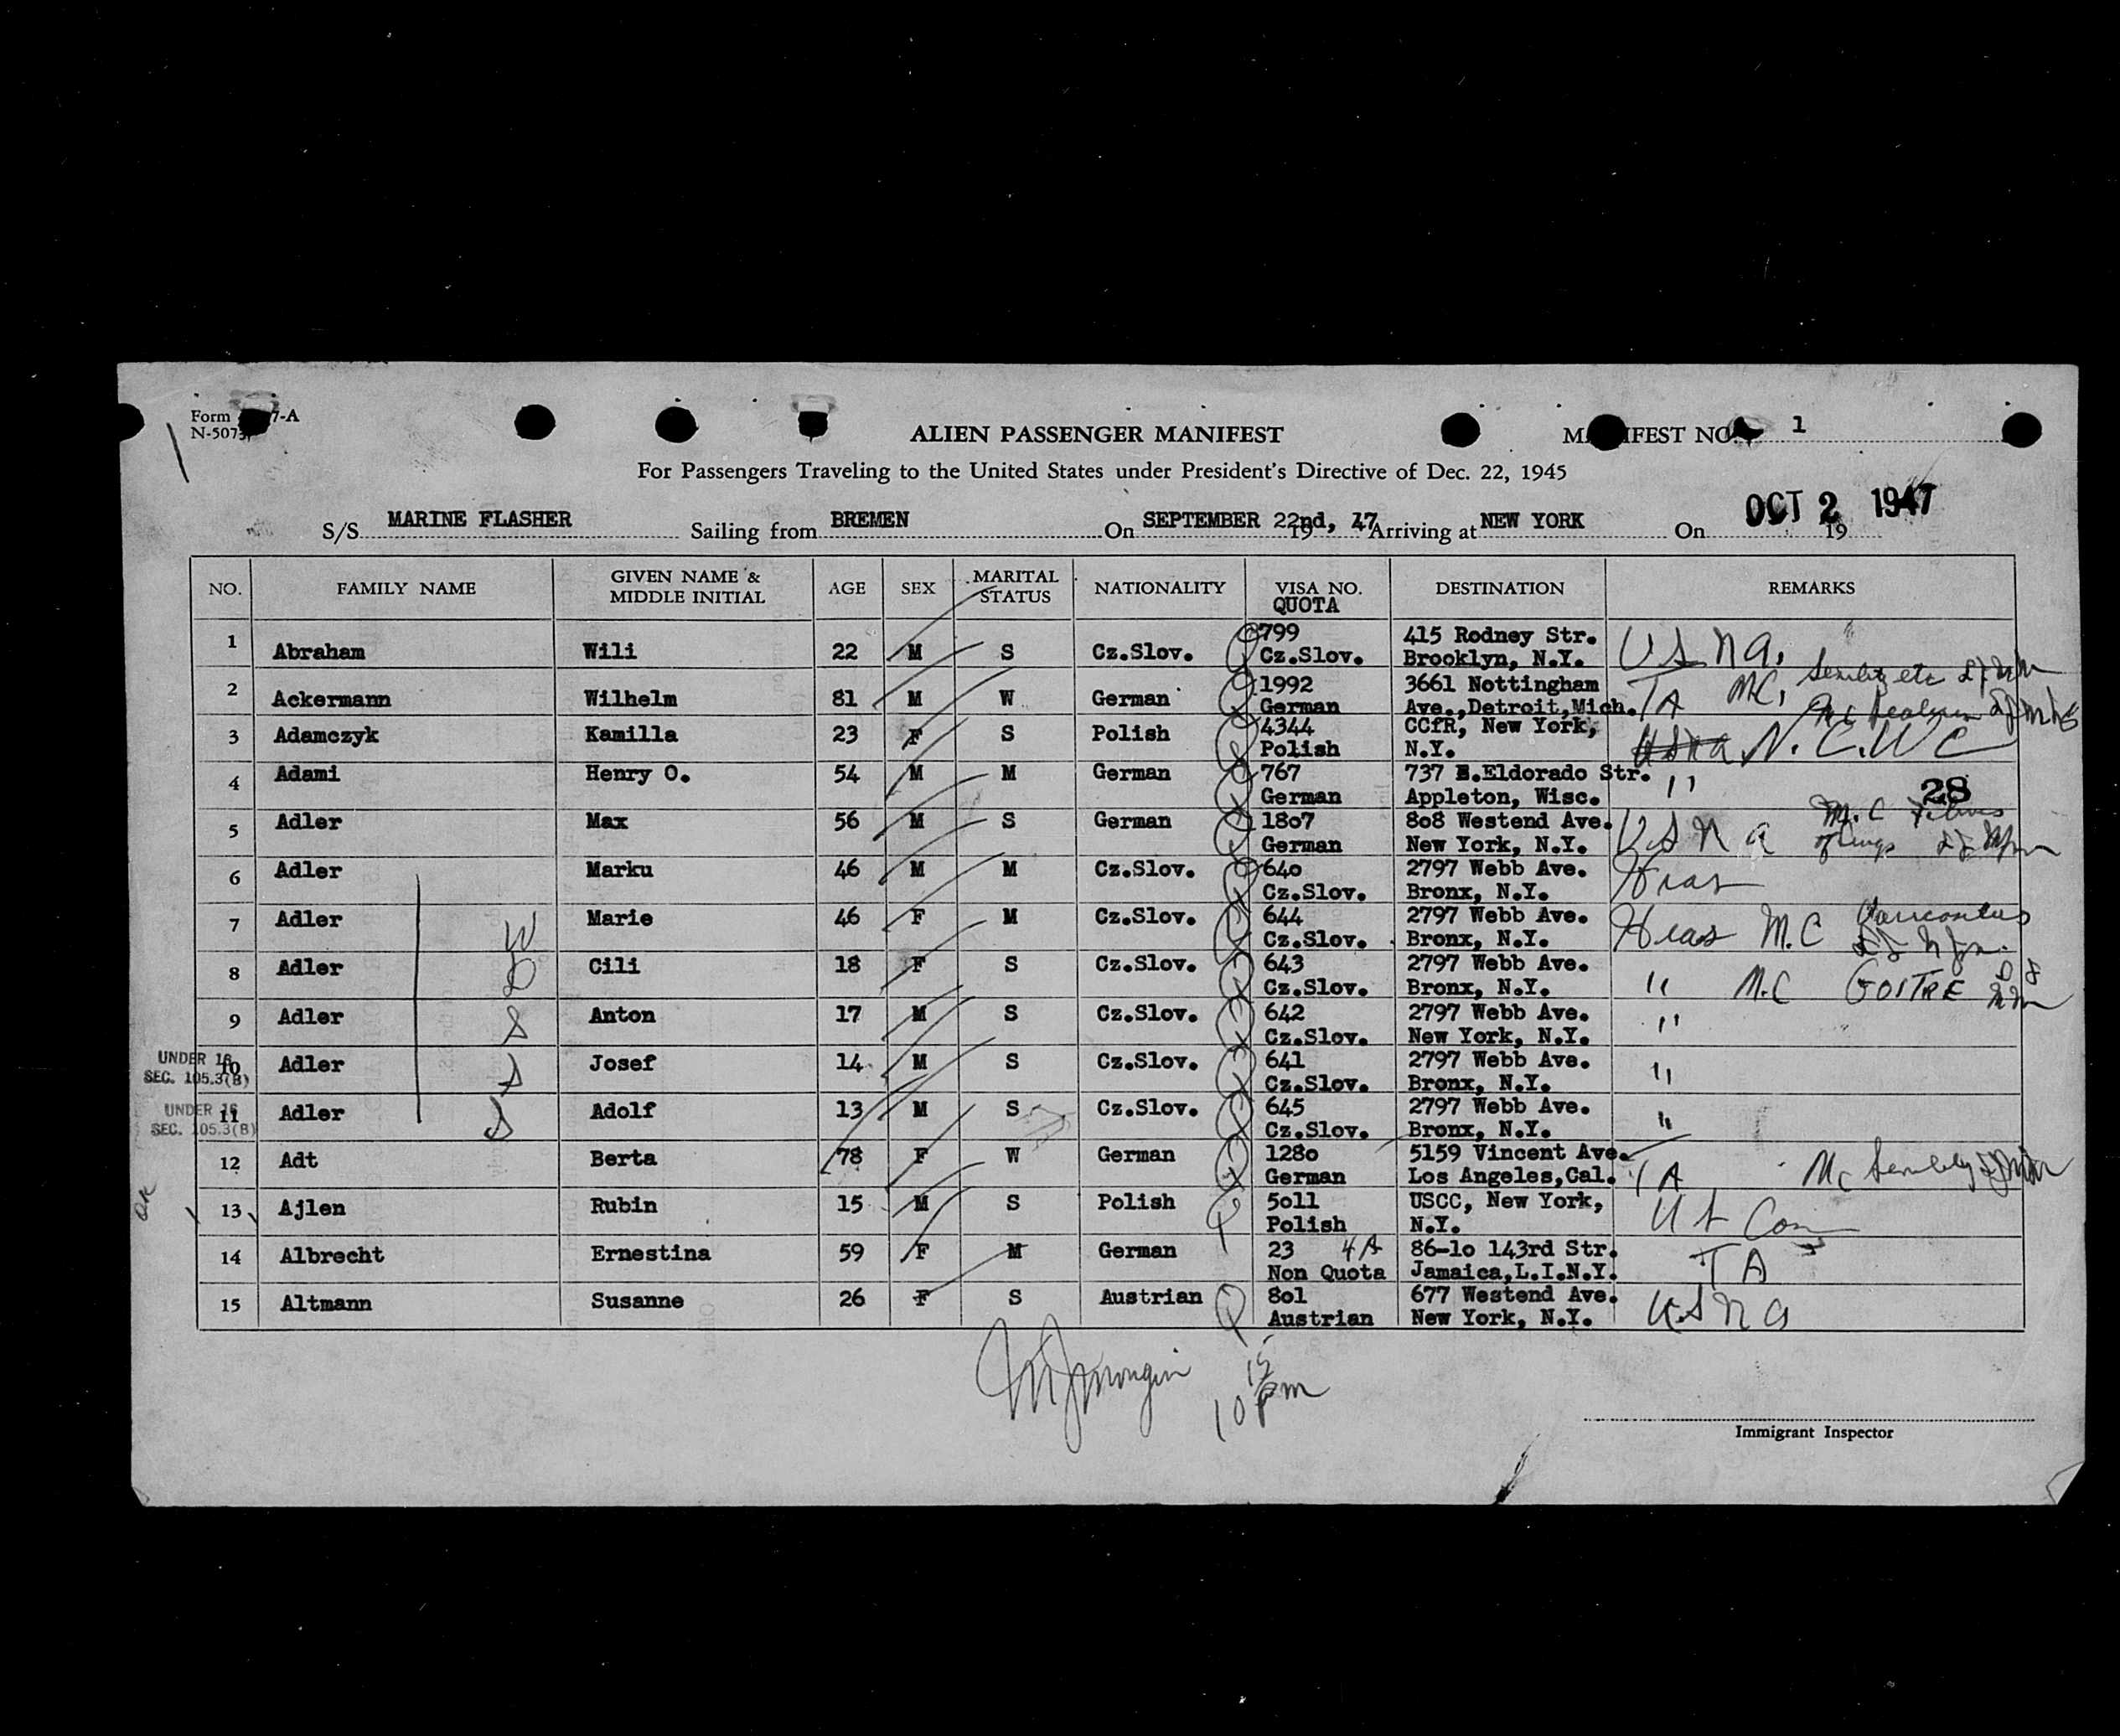 Form 7-A
N-5073
ALIEN PASSENGER MANIFEST
MANIFEST NO. 1
For Passengers Traveling to the United States under President's Directive of Dec. 22, 1945
S/S MARINE FLASHER Sailing from BREMEN On SEPTEMBER 22nd, 19 47 Arriving at NEW YORK On OCT 2 1947 19
NO. FAMILY NAME GIVEN NAME & MIDDLE INITIAL AGE SEX MARITAL STATUS NATIONALITY VISA NO. QUOTA DESTINATION REMARKS
1 Abraham Wili 22 M S Cz.Slov. 799 Cz.Slov. 415 Rodney Str. Brooklyn, N.Y. USNA.
2 Ackermann Wilhelm 81 M W German 1992 German 3661 Nottingham Ave.,Detroit,Mich. TA MC, Senility etc
3 Adamczyk Kamilla 23 F S Polish 4344 Polish CCfR, New York, N.Y. USNA N.C.W.C
4 Adami Henry O. 54 M M German 767 German 737 E.Eldorado Str. Appleton, Wisc. " 28
5 Adler Max 56 M S German 18o7 German 8o8 Westend Ave. New York, N.Y. USNA M.C of lungs
6 Adler Marku 46 M M Cz.Slov. 64o Cz.Slov. 2797 Webb Ave. Bronx, N.Y. Hias
7 W Adler Marie 46 F M Cz.Slov. 644 Cz.Slov. 2797 Webb Ave. Bronx, N.Y. Hias M.C
8 Adler D Cili 18 F S Cz.Slov. 643 Cz.Slov. 2797 Webb Ave. Bronx, N.Y. " M.C GOITRE
9 Adler S Anton 17 M S Cz.Slov. 642 Cz.Slov. 2797 Webb Ave. New York, N.Y. "
UNDER 16 SEC. 105.3(B) 10 Adler S Josef 14 M S Cz.Slov. 641 Cz.Slov. 2797 Webb Ave. Bronx, N.Y. "
UNDER 16 SEC. 105.3(B) 11 Adler S Adolf 13 M S Cz.Slov. 645 Cz.Slov. 2797 Webb Ave. Bronx, N.Y. "
12 Adt Berta 78 F W German 128o German 5159 Vincent Ave. Los Angeles,Cal. TA Mc Senility
OK 13 Ajlen Rubin 15 M S Polish 5o11 Polish USCC, New York, N.Y. US Com
14 Albrecht Ernestina 59 F M German 23 4A Non Quota 86-1o 143rd Str. Jamaica,L.I.N.Y. TA
15 Altmann Susanne 26 F S Austrian 8o1 Austrian 677 Westend Ave. New York, N.Y. USNA
10 15 pm
Immigrant Inspector